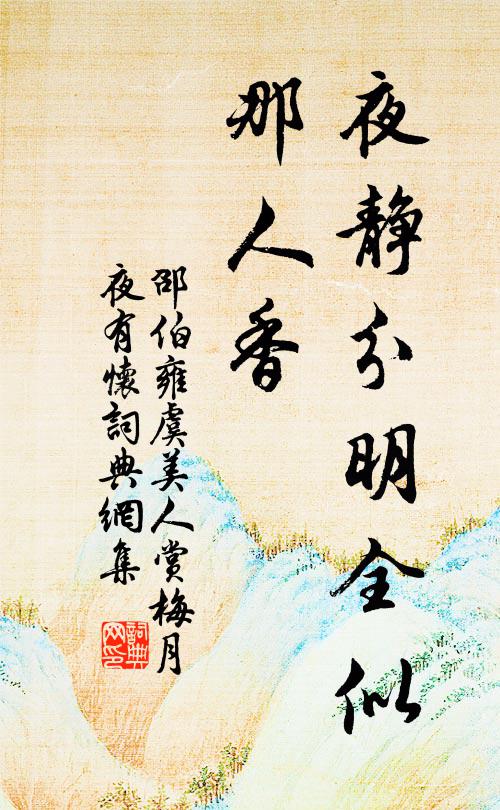 夜靜分明全似
那人香
邵伯雍虞美人賞梅月
夜有懷詞典網集
詞典
网印